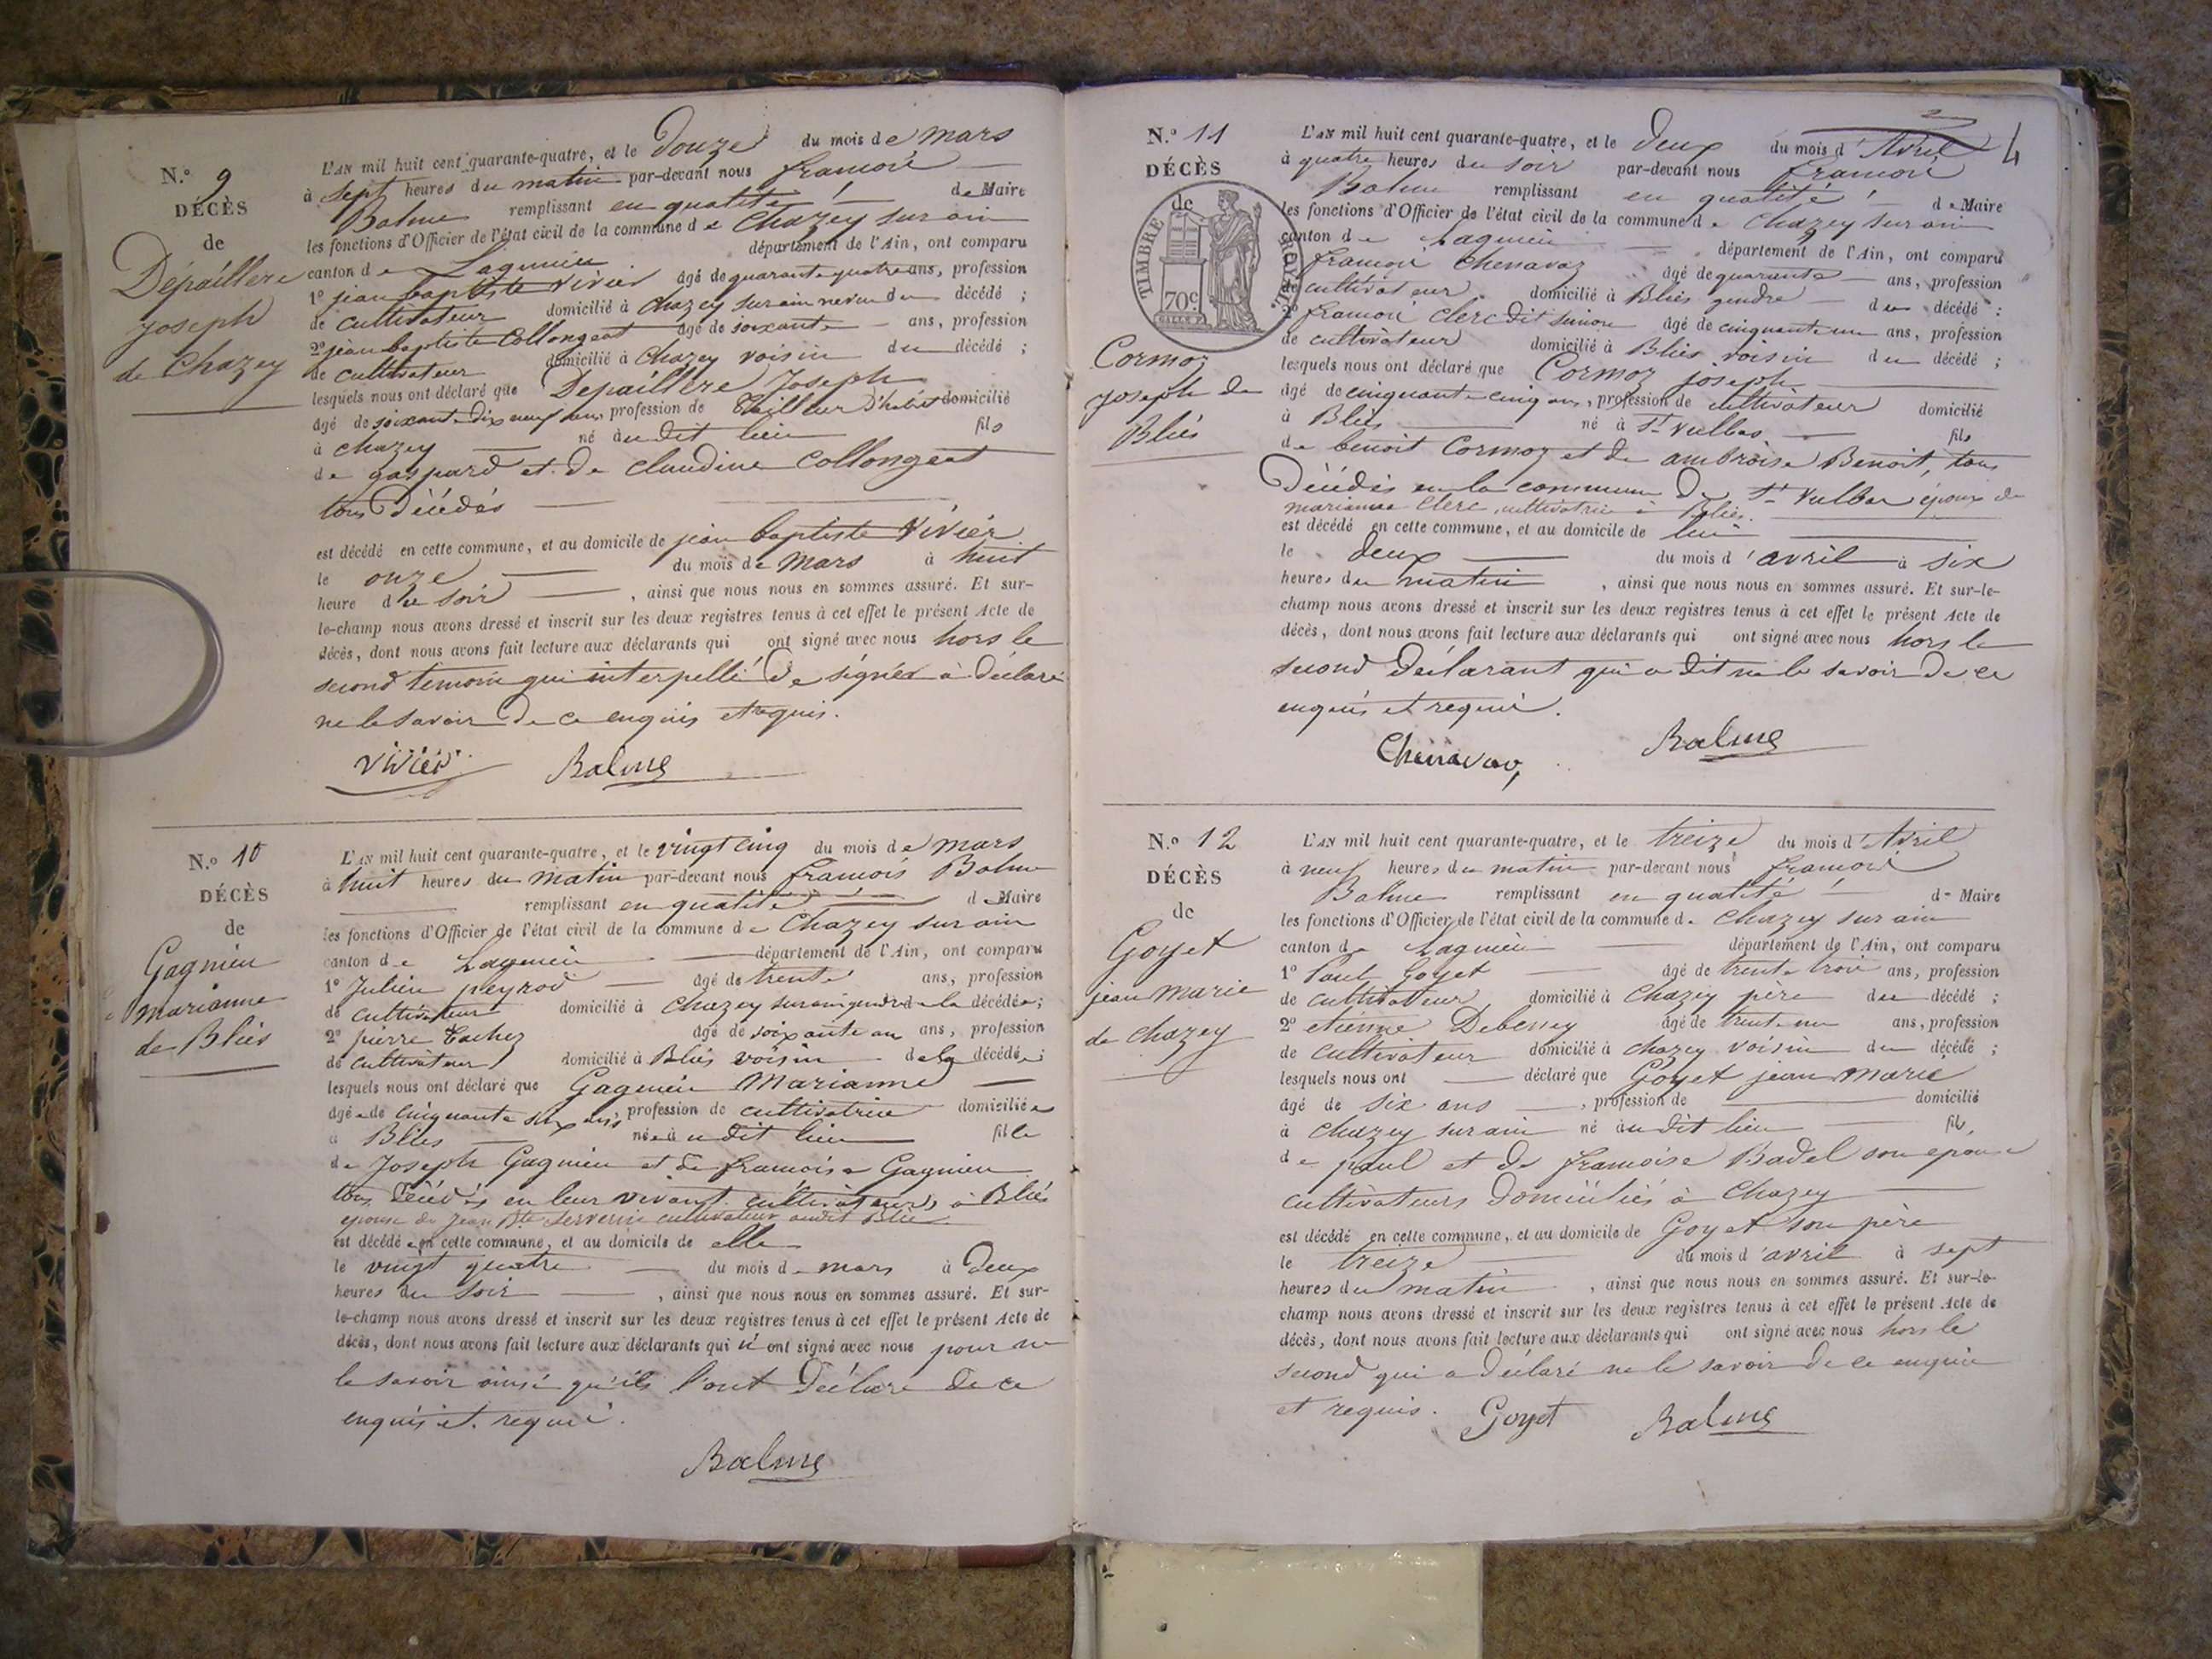 N.º 9
DÉCÈS
de
Dépaillere
joseph
de Chazey
L'AN mil huit cent quarante-quatre, et le Douze du mois de mars
à sept heures du matin par-devant nous francois
Balme remplissant en qualité de Maire
les fonctions d'Officier de l'état civil de la commune de Chazey sur ain
canton de Lagnieu département de l'Ain, ont comparu
1º jean baptiste Vivier âgé de quarante quatre ans, profession
de cultivateur domicilié à Chazey sur ain neveu du décédé ;
2º jean baptiste Collongeat âgé de soixante ans, profession
de cultivateur domicilié à Chazey voisin du décédé ;
lesquels nous ont déclaré que Depaillere Joseph
âgé de soixante dix neuf ans, profession de Tailleur D'habit domicilié
à chazey né au dit lieu fils
de gaspard et de claudine Collongeat
tous Décédés
est décédé en cette commune, et au domicile de jean baptiste Vivier
le onze du mois de Mars à huit
heure du soir , ainsi que nous nous en sommes assuré. Et sur-
le-champ nous avons dressé et inscrit sur les deux registres tenus à cet effet le présent Acte de
décès, dont nous avons fait lecture aux déclarants qui ont signé avec nous hors le
second temoin qui interpellé De signer a Déclaré
ne le savoir De ce enquis et requis.
Vivier Balme
N.º 10
DÉCÈS
de
Gagnieu
marianne
de Bliés
L'AN mil huit cent quarante-quatre, et le vingt cinq du mois de mars
à huit heures du matin par-devant nous francois Balme
remplissant en qualité de Maire
les fonctions d'Officier de l'état civil de la commune de Chazey sur ain
canton de Lagnieu département de l'Ain, ont comparu
1º Julien peyrod âgé de trente ans, profession
de cultivateur domicilié à Chazey sur ain gendre de la décédée ;
2º pierre Cochez âgé de soixante un ans, profession
de cultivateur domicilié à Bliés voisin de la décédée ;
lesquels nous ont déclaré que Gagnieu Marianne
âgée de cinquante six ans, profession de cultivatrice domiciliée
à Bliés née au dit lieu fille
de Joseph Gagnieu et de francoise Gagnieu
tous Décédés en leur vivant cultivateurs à Bliés
epouse de Jean Bte cultivateur audit Bliés
est décédée en cette commune, et au domicile de elle
le vingt quatre du mois de mars à Deux
heures du soir , ainsi que nous nous en sommes assuré. Et sur-
le-champ nous avons dressé et inscrit sur les deux registres tenus à cet effet le présent Acte de
décès, dont nous avons fait lecture aux déclarants qui n'ont signé avec nous pour ne
le savoir ainsi qu'ils l'ont Déclaré De ce
enquis et requis.
Balme
4
N.º 11
DÉCÈS
de
TIMBRE ROYAL
70c
Cormoz
joseph de
Bliés
L'AN mil huit cent quarante-quatre, et le Deux du mois d'Avril
à quatre heures du soir par-devant nous francois
Balme remplissant en qualité de Maire
les fonctions d'Officier de l'état civil de la commune de Chazey sur ain
canton de Lagnieu département de l'Ain, ont comparu
francois Chenavaz âgé de quarante ans, profession
de cultivateur domicilié à Bliés gendre du décédé ;
2º francois Clerc dit simon âgé de cinquante un ans, profession
de cultivateur domicilié à Bliés voisin du décédé ;
lesquels nous ont déclaré que Cormoz joseph
âgé de cinquante cinq ans, profession de cultivateur domicilié
à Bliés né à St Vulbas fils
de benoit Cormoz et de ambroise Benoit, tous
Décédés en la commune De St Vulbas époux de
marianne Clerc, cultivatrice à Bliés.
est décédé en cette commune, et au domicile de lui
le deux du mois d'avril à six
heures du matin , ainsi que nous nous en sommes assuré. Et sur-le-
champ nous avons dressé et inscrit sur les deux registres tenus à cet effet le présent Acte de
décès, dont nous avons fait lecture aux déclarants qui ont signé avec nous hors le
second Déclarant qui a dit ne le savoir De ce
enquis et requis.
Chenavaz Balme
N.º 12
DÉCÈS
de
Goyet
jean marie
de chazey
L'AN mil huit cent quarante-quatre, et le treize du mois d'Avril
à neuf heures du matin par-devant nous francois
Balme remplissant en qualité de Maire
les fonctions d'Officier de l'état civil de la commune de Chazey sur ain
canton de Lagnieu département de l'Ain, ont comparu
1º Paul Goyet âgé de trente trois ans, profession
de cultivateur domicilié à Chazey père du décédé ;
2º etienne Debeney âgé de trente un ans, profession
de cultivateur domicilié à chazey voisin du décédé ;
lesquels nous ont déclaré que Goyet jean marie
âgé de six ans , profession de domicilié
à Chazey sur ain né au dit lieu fils
de paul et De francoise Badel son epouse
cultivateurs Domiciliés à Chazey
est décédé en cette commune, et au domicile de Goyet son père
le treize du mois d'avril à sept
heures du matin , ainsi que nous nous en sommes assuré. Et sur-le-
champ nous avons dressé et inscrit sur les deux registres tenus à cet effet le présent Acte de
décès, dont nous avons fait lecture aux déclarants qui ont signé avec nous hors le
second qui a Déclaré ne le savoir De ce enquis
et requis. Goyet Balme